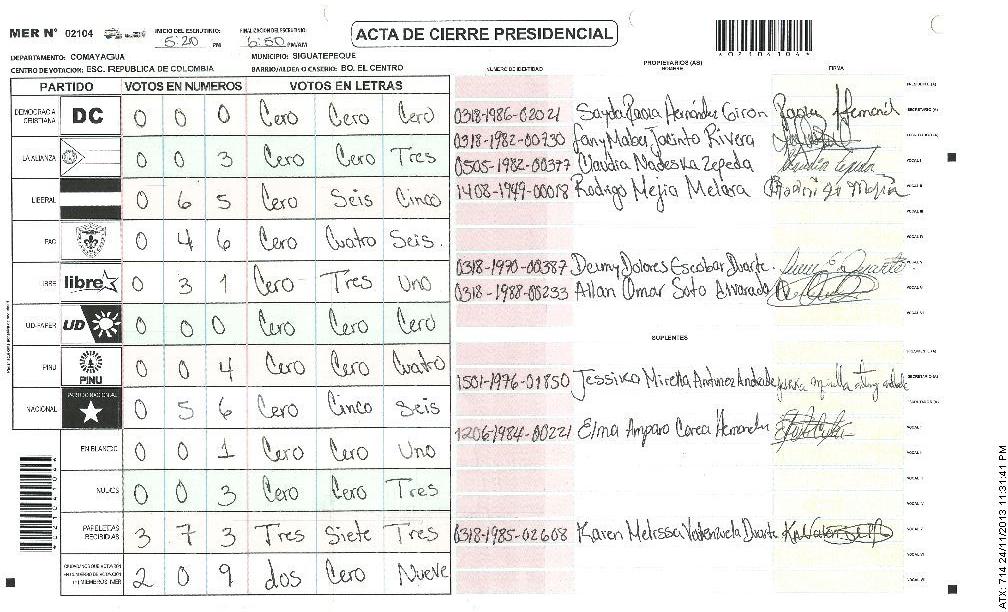 MER N° 02104 INICIO DEL ESCRUTINIO: 5:20 PM FINALIZACION DEL ESCRUTINIO: 6:50 PM/AM
ACTA DE CIERRE PRESIDENCIAL
DEPARTAMENTO: COMAYAGUA MUNICIPIO: SIGUATEPEQUE
CENTRO DE VOTACION: ESC. REPUBLICA DE COLOMBIA BARRIO/ALDEA O CASERIO: BO. EL CENTRO
PARTIDO VOTOS EN NUMEROS VOTOS EN LETRAS
DEMOCRACIA CRISTIANA DC 0 0 0 Cero Cero Cero
LA ALIANZA 0 0 3 Cero Cero Tres
LIBERAL 0 6 5 Cero Seis Cinco
PAC 0 4 6 Cero Cuatro Seis.
LIBRE libre 0 3 1 Cero Tres Uno
UD-FAPER UD 0 0 0 Cero Cero Cero
PINU PINU 0 0 4 Cero Cero Cuatro
NACIONAL PARTIDO NACIONAL 0 5 6 Cero Cinco Seis
EN BLANCO 0 0 1 Cero Cero Uno
NULOS 0 0 3 Cero Cero Tres
PAPELETAS RECIBIDAS 3 7 3 Tres Siete Tres
CIUDADANOS QUE VOTARON 2 0 9 dos Cero Nueve
NUMERO DE IDENTIDAD PROPIETARIOS (AS) NOMBRE FIRMA
0318-1986-02021 Sayda Paola Hernández Giron
0318-1982-00730 Jany Mabel Jacinto Rivera
0505-1982-00377 Claudia Nadeska Zepeda
1408-1949-00018 Rodrigo Mejia Melara
0318-1970-00387 Deimy Dolores Escobar Duarte
0318-1988-00233 Allan Omar Soto Alvarado
SUPLENTES
1501-1976-01850 Jessika Mirella Antunez Andrade
1206-1984-00221 Elma Amparo Correa Hernandez
0318-1985-02608 Karen Melissa Valenzuela Duarte
ATX: 714 24/11/2013 11:31:41 PM